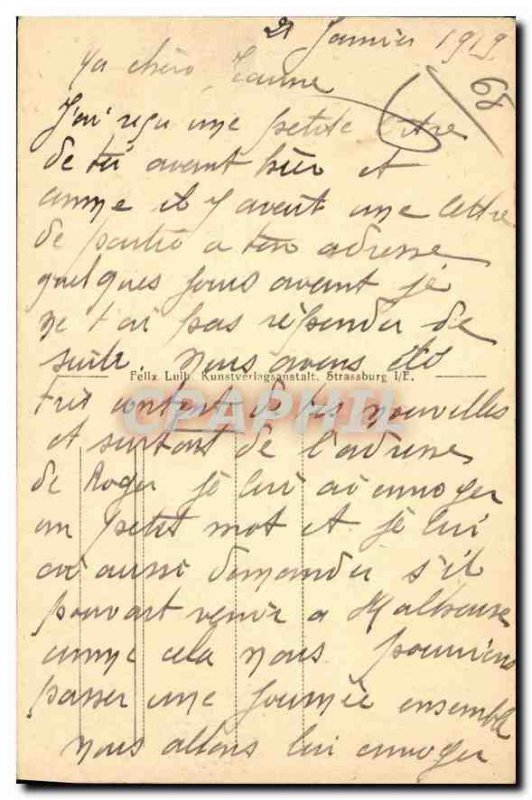 21 Janvier 1919
68
Ma chère Jeanne
J'ai reçu une petite lettre
de toi avant hier et
comme il y avait une lettre
de partie a ton adresse
quelques jours avant je
ne t'ai pas répondu de
suite. Nous avons été
Félix Luib, Kunstverlagsanstalt, Strassburg i/E.
Très content de tes nouvelles
CPAPHIL
et surtout de l'adresse
de Roger je lui ai envoyer
un petit mot et je lui
ai aussi demander s'il
pouvait venir a Mulhouse
comme cela nous pourrions
passer une journée ensemble
nous allons lui envoyer